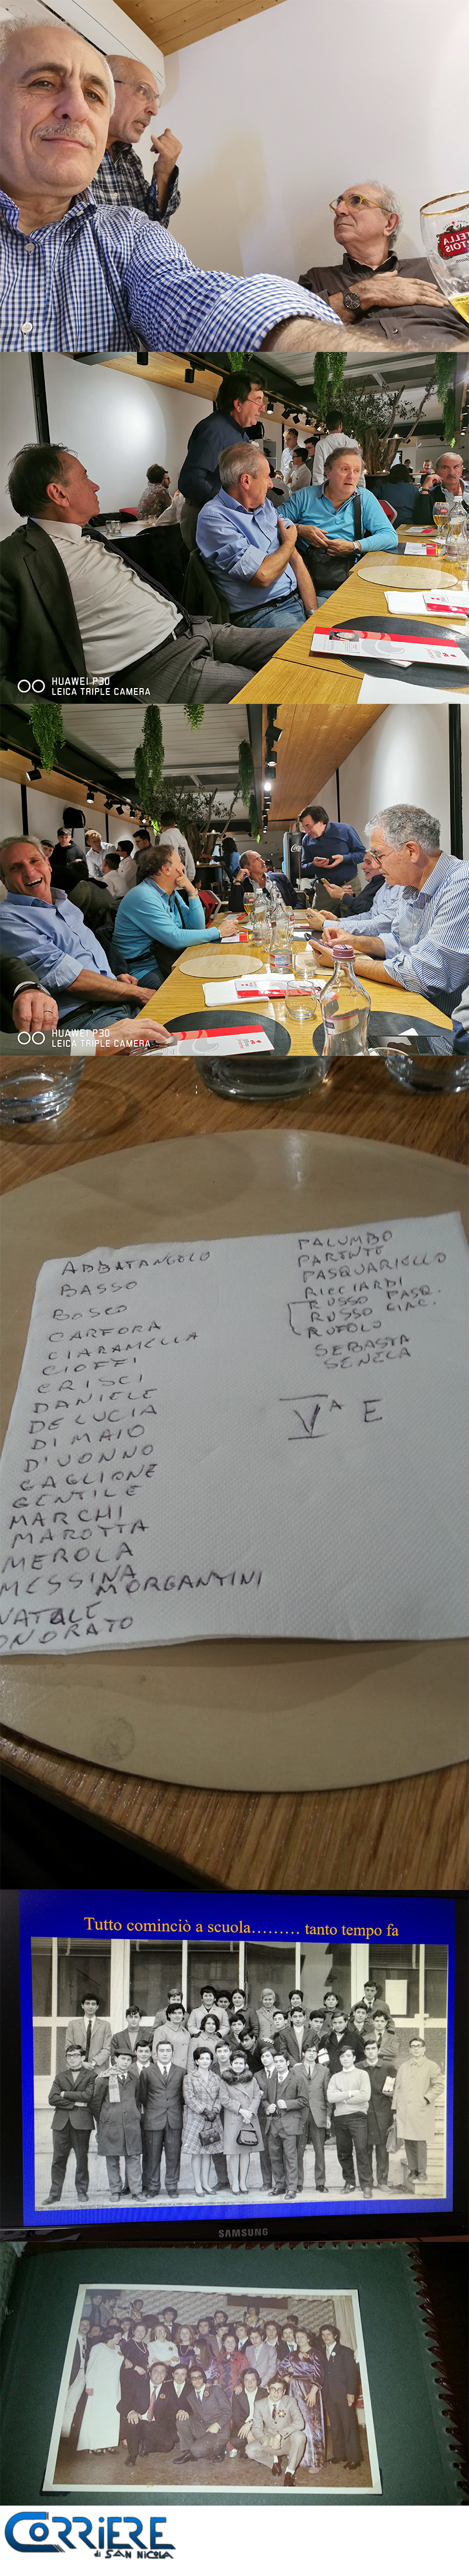 STELLA
ARTOIS
HUAWEI P30
LEICA TRIPLE CAMERA
HUAWEI P30
LEICA TRIPLE CAMERA
ABBATANGOLO
BASSO
BOSCO
CARFORA
CIARAMELLA
CIOFFI
CRISCI
DANIELE
DE LUCIA
DI MAIO
D'UONNO
GAGLIONE
GENTILE
MARCHI
MAROTTA
MEROLA
MESSINA MORGANTINI
NATALE
ONORATO
PALUMBO
PARENTE
PASQUARIELLO
RICCIARDI
RUSSO PASQ.
RUSSO GIAC.
RUFOLO
SEBASTA
SENECA
Vᴬ E
Tutto cominciò a scuola……… tanto tempo fa
SAMSUNG
CORRIERE
di SAN NICOLA